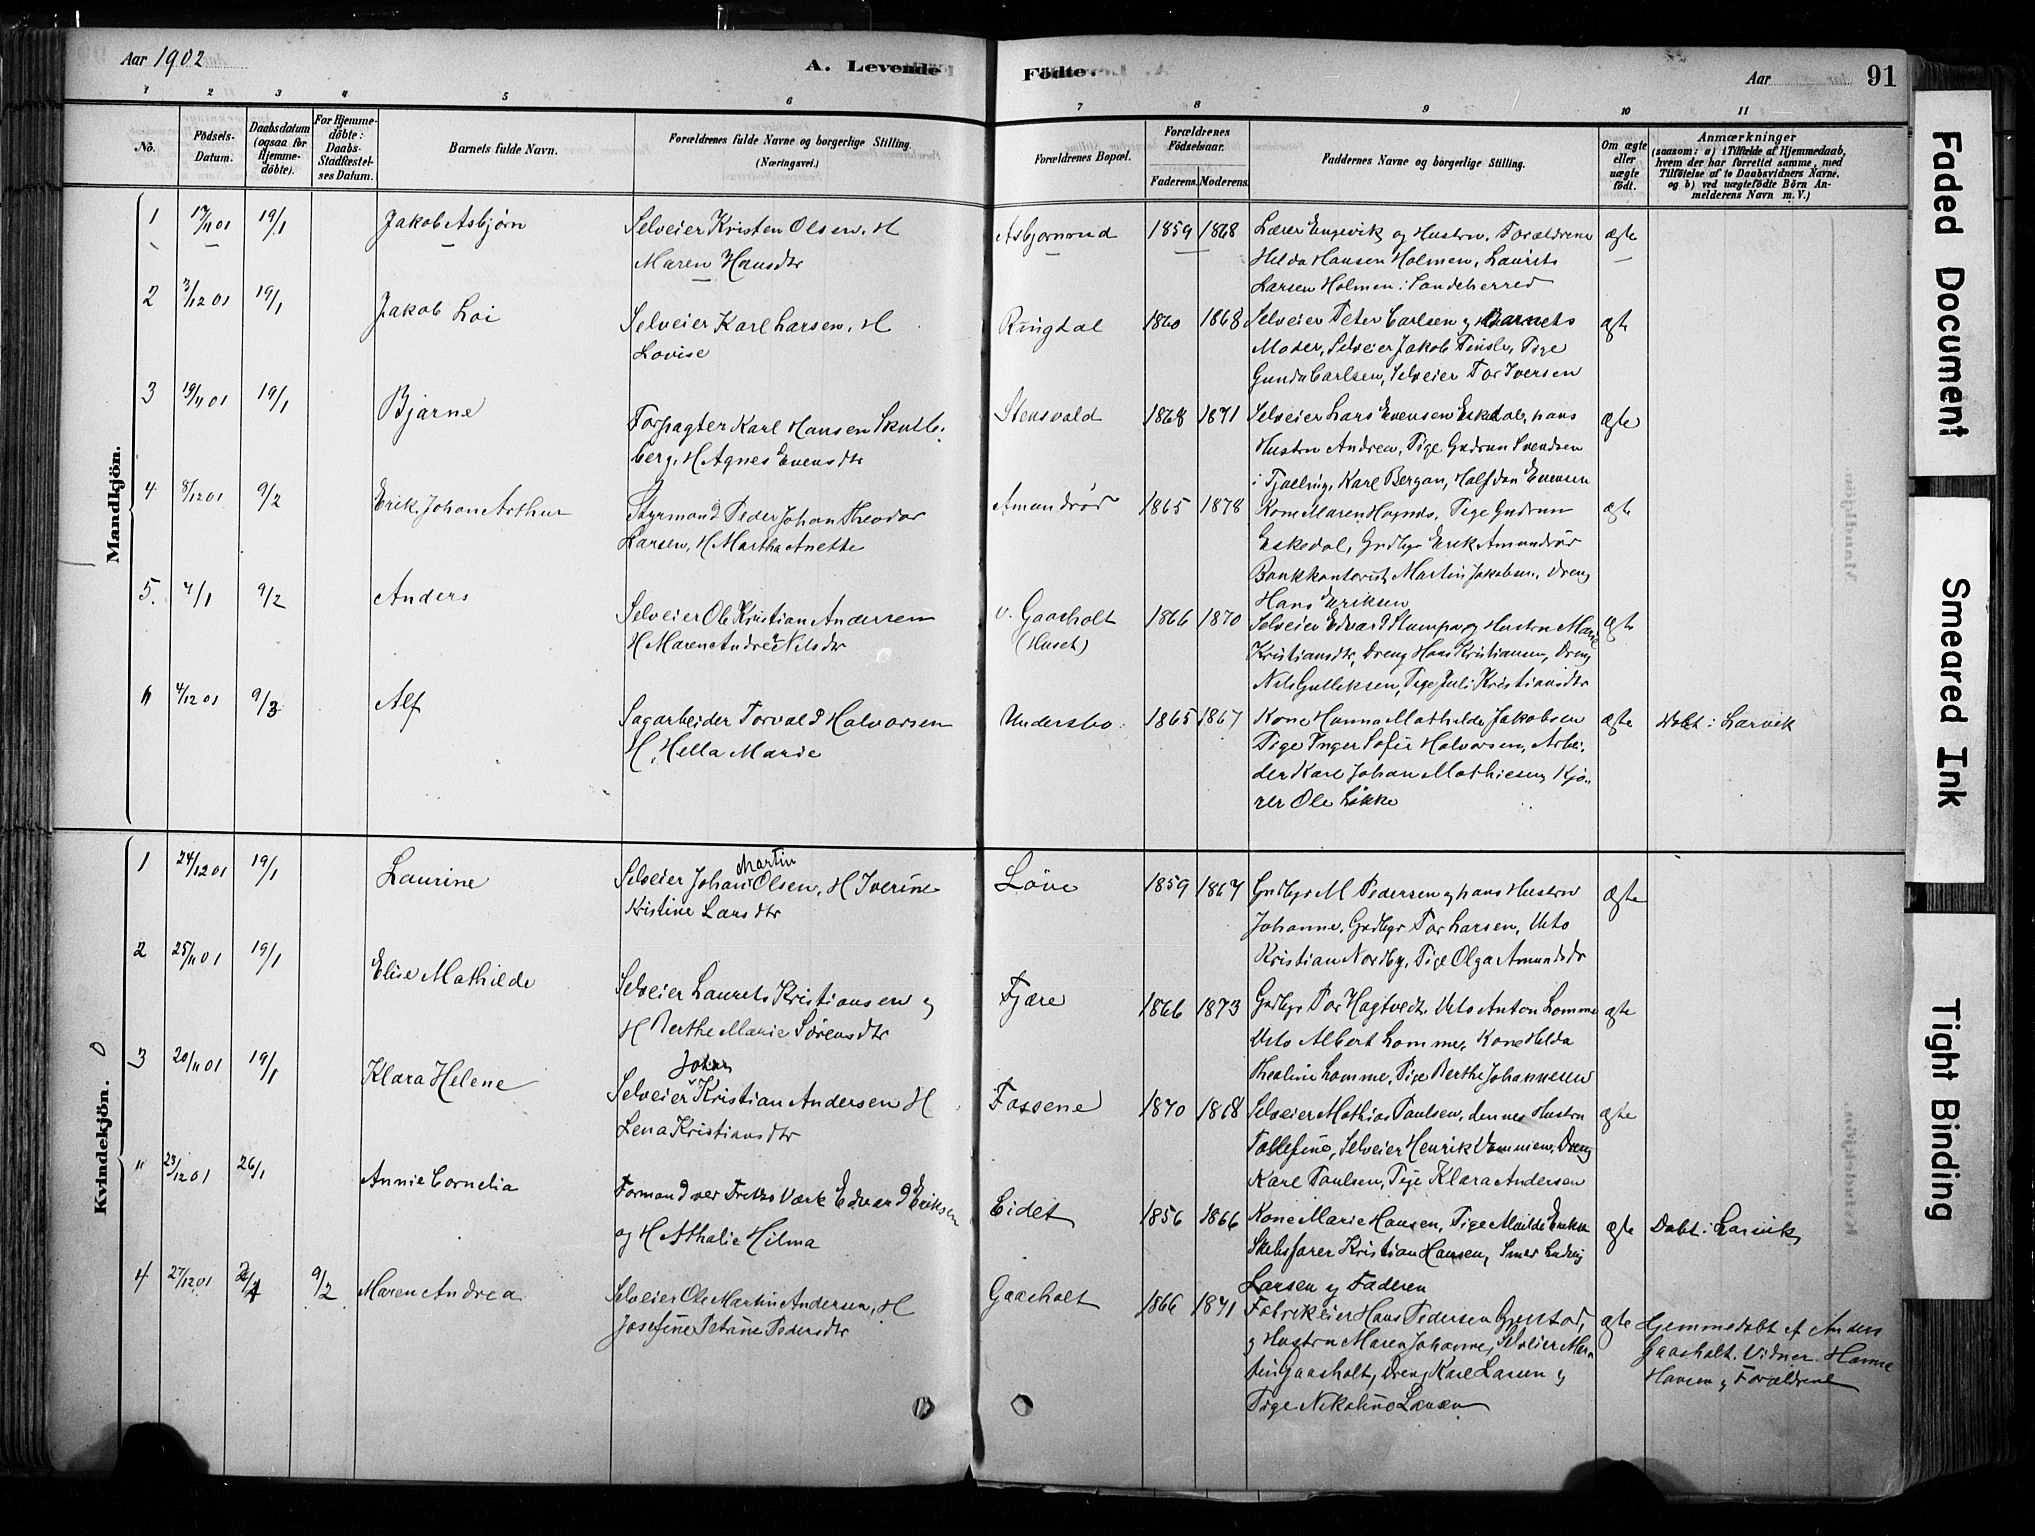 Aar 1902
A. Levende Födte.
Aar
91
1 2 3 4 5 6 7 8 9 10 11
No.
Födsels-Datum.
Daabsdatum (ogsaa for Hjemmedöbte).
For Hjemmedöbte: Daabs-Stadfæstelses Datum.
Barnets fulde Navn.
Forældrenes fulde Navne og borgerlige Stilling.
(Næringsvei.)
Forældrenes Bopæl.
Forældrenes Födselsaar.
Faderens. Moderens.
Faddernes Navne og borgerlige Stilling.
Om ægte eller uægte födt.
Anmærkninger
(saasom: a) i Tilfælde af Hjemmedaab,
hvem der har forrettet samme, med
Tilföielse af to Daabsvidners Navne,
og b) ved uægtefödte Börn Anmelderens Navn m. V.)
Mandkjön.
1 17/11 01 19/1 Jakob Asbjørn
Selveier Kristen Olsen, H
Maren Hansdtr
Asbjørnrud 1859 1868
Lærer Engevik og Hustru, Forældrene
Helda Hansen Holmen, Laurits
Larsen Holmen i Sandeherred
ægte
2 3/12 01 19/1 Jakob Loi
Selveier Karl Larsen, H
Lovise
Ringdal 1860 1868
Selveier Peter Carlsen og Barnets
Moder, Selveier Jakob Tinsle, Pige
Gunda Carlsen, Selveier Tor Iversen
ægte
3 19/11 01 19/1 Bjarne
Forpagter Karl Hansen Skulle-
berg, H Agnes Evensdtr
Stensvald 1868 1871
Selveier Lars Evensen Eskedal, hans
Hustru Andrea, Pige Gudrun Svendsen
i Tjølling, Karl Bergan, Halfdan Evensen
ægte
4 8/12 01 9/2 Erik Johan Arthur
Styrmand Peder Johan Theodor
Larsen, H Martha Anette
Amundrød 1865 1878
Kone Maren Hognds, Pige Gudrun
Eskedal, Grdbgr Erik Amundrød
Bankkontorist Martin Jakobsen, Dreng
Hans Eriksen
ægte
5. 7/1 9/2 Anders
Selveier Ole Kristian Andersen
H Maren Andrea Nilsdtr
v. Gaasholt
(Huset)
1866 1870
Selveier Edvard Stumpø og Hustru Marie
Kristiansdtr, Dreng Hans Kristiansen, Dreng
Nils Gulliksen, Pige Juli Kristiansdtr
ægte
" 4/12 01 9/3 Alf
Sagarbeider Torvald Halvorsen
H, Hella Marie
Undersbo 1865 1867
Kone Hanna Mathilde Jakobsen
Pige Inger Sofie Halvorsen, Arbei-
der Karl Johan Mathiesen, Kjø-
rer Ole Løkke
ægte
Døbt i Larvik
Kvindekjön.
1 24/12 01 19/1 Laurine
Selveier Johan Martin Olsen, H Iverine
Kristine Larsdtr
Løve 1859 1867
Grdbgr M Pedersen og hans Hustru
Johanne, Grdbgr Tor Larsen, Ueto
Kristian Nordby, Pige Olga Amundsdr
ægte
2 25/11 01 19/1 Elise Mathilde
Selveier Laurets Kristiansen og
H Berthe Marie Sørensdtr
Fjære 1866 1873
Grdbgr Tor Hagtvedt, Ueto Anton Lomme
Ueto Albert Lomme, Kone Helda
Theoline Lomme, Pige Berthe Johannesen
ægte
3 20/11 01 19/1 Klara Helene
Selveier Johan Kristian Andersen H
Lena Kristiansdtr
Fossene 1870 1868
Selveier Mathias Paulsen, dennes Hustru
Tollefine, Selveier Henrik Vemmen, Dreng
Karl Paulsen, Pige Klara Andersen
ægte
" 23/12 01 26/1 Annie Cornelia
Formand ver Fritzø Værk Edvard Eriksen
og H Athalie Hilma
Eidet 1856 1866
Kone Marie Hansen, Pige Milde Eriksen
Skibsfører Kristian Hansen, Smed Ludvig
Larsen og Faderen
ægte
Døbt i Larvik
4 27/12 01 2/1 9/2 Maren Andrea
Selveier Ole Martin Andersen, H
Josefine Petrine Pedersdtr
Gaasholt 1866 1871
Fabrikeier Hans Pedersen Gjerstad,
og Hustru Maren Johanne, Selveier Mar-
tin Gaasholt, Dreng Karl Larsen og
Pige Nikoline Larsen
ægte
Hjemmedøbt af Anders
Gaasholt. Vidner Hanne
Hansen og Forældrene
Faded Document
Smeared Ink
Tight Binding